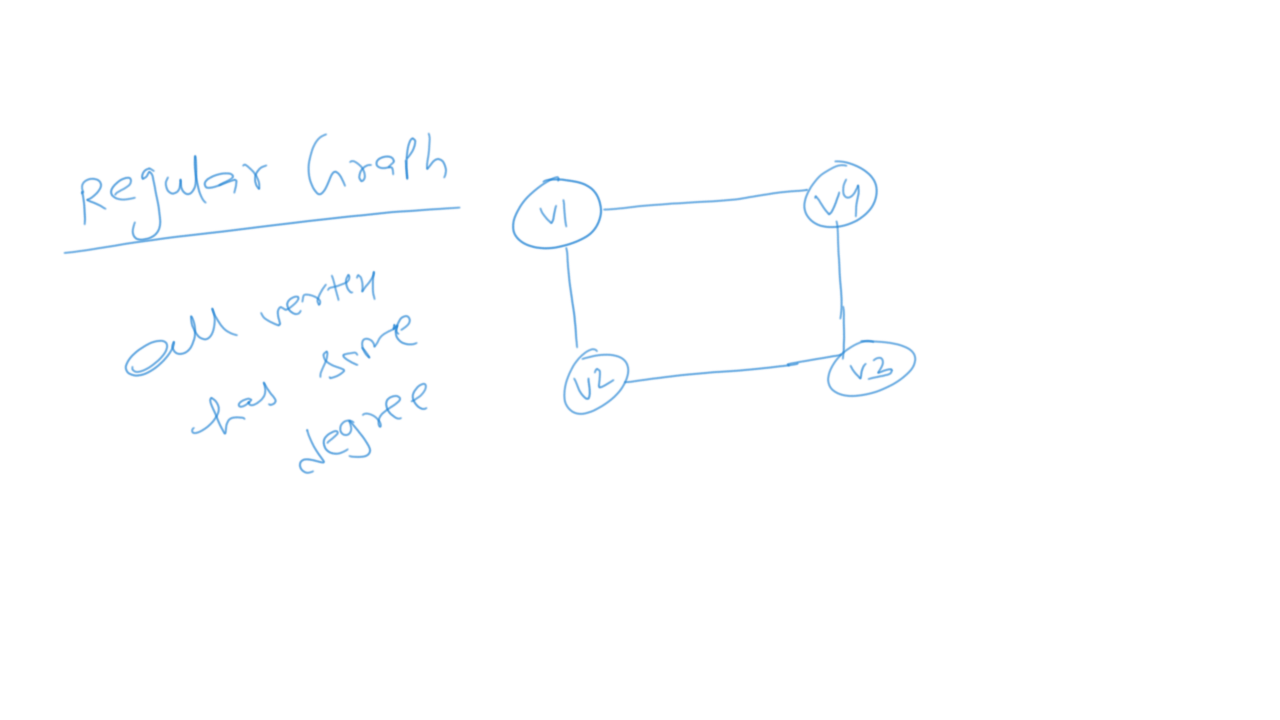 Regular Graph
all vertex
has same
degree
v1
v4
v2
v3